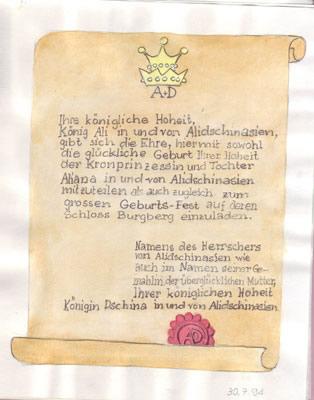 A+D
Ihre königliche Hoheit,
König Ali in und von Alidschinasien,
gibt sich die Ehre, hiermit sowohl
die glückliche Geburt Ihrer Hoheit
der Kronprinzessin und Tochter
Aliana in und von Alidschinasien
mitzuteilen als auch zugleich zum
grossen Geburts-Fest auf deren
Schloss Burgberg einzuladen.
Namens des Herrschers
von Alidschinasien wie
auch im Namen seiner Ge-
mahlin, der überglücklichen Mutter,
Ihrer königlichen Hoheit
Königin Dschina in und von Alidschinasien
AD
30.7.94